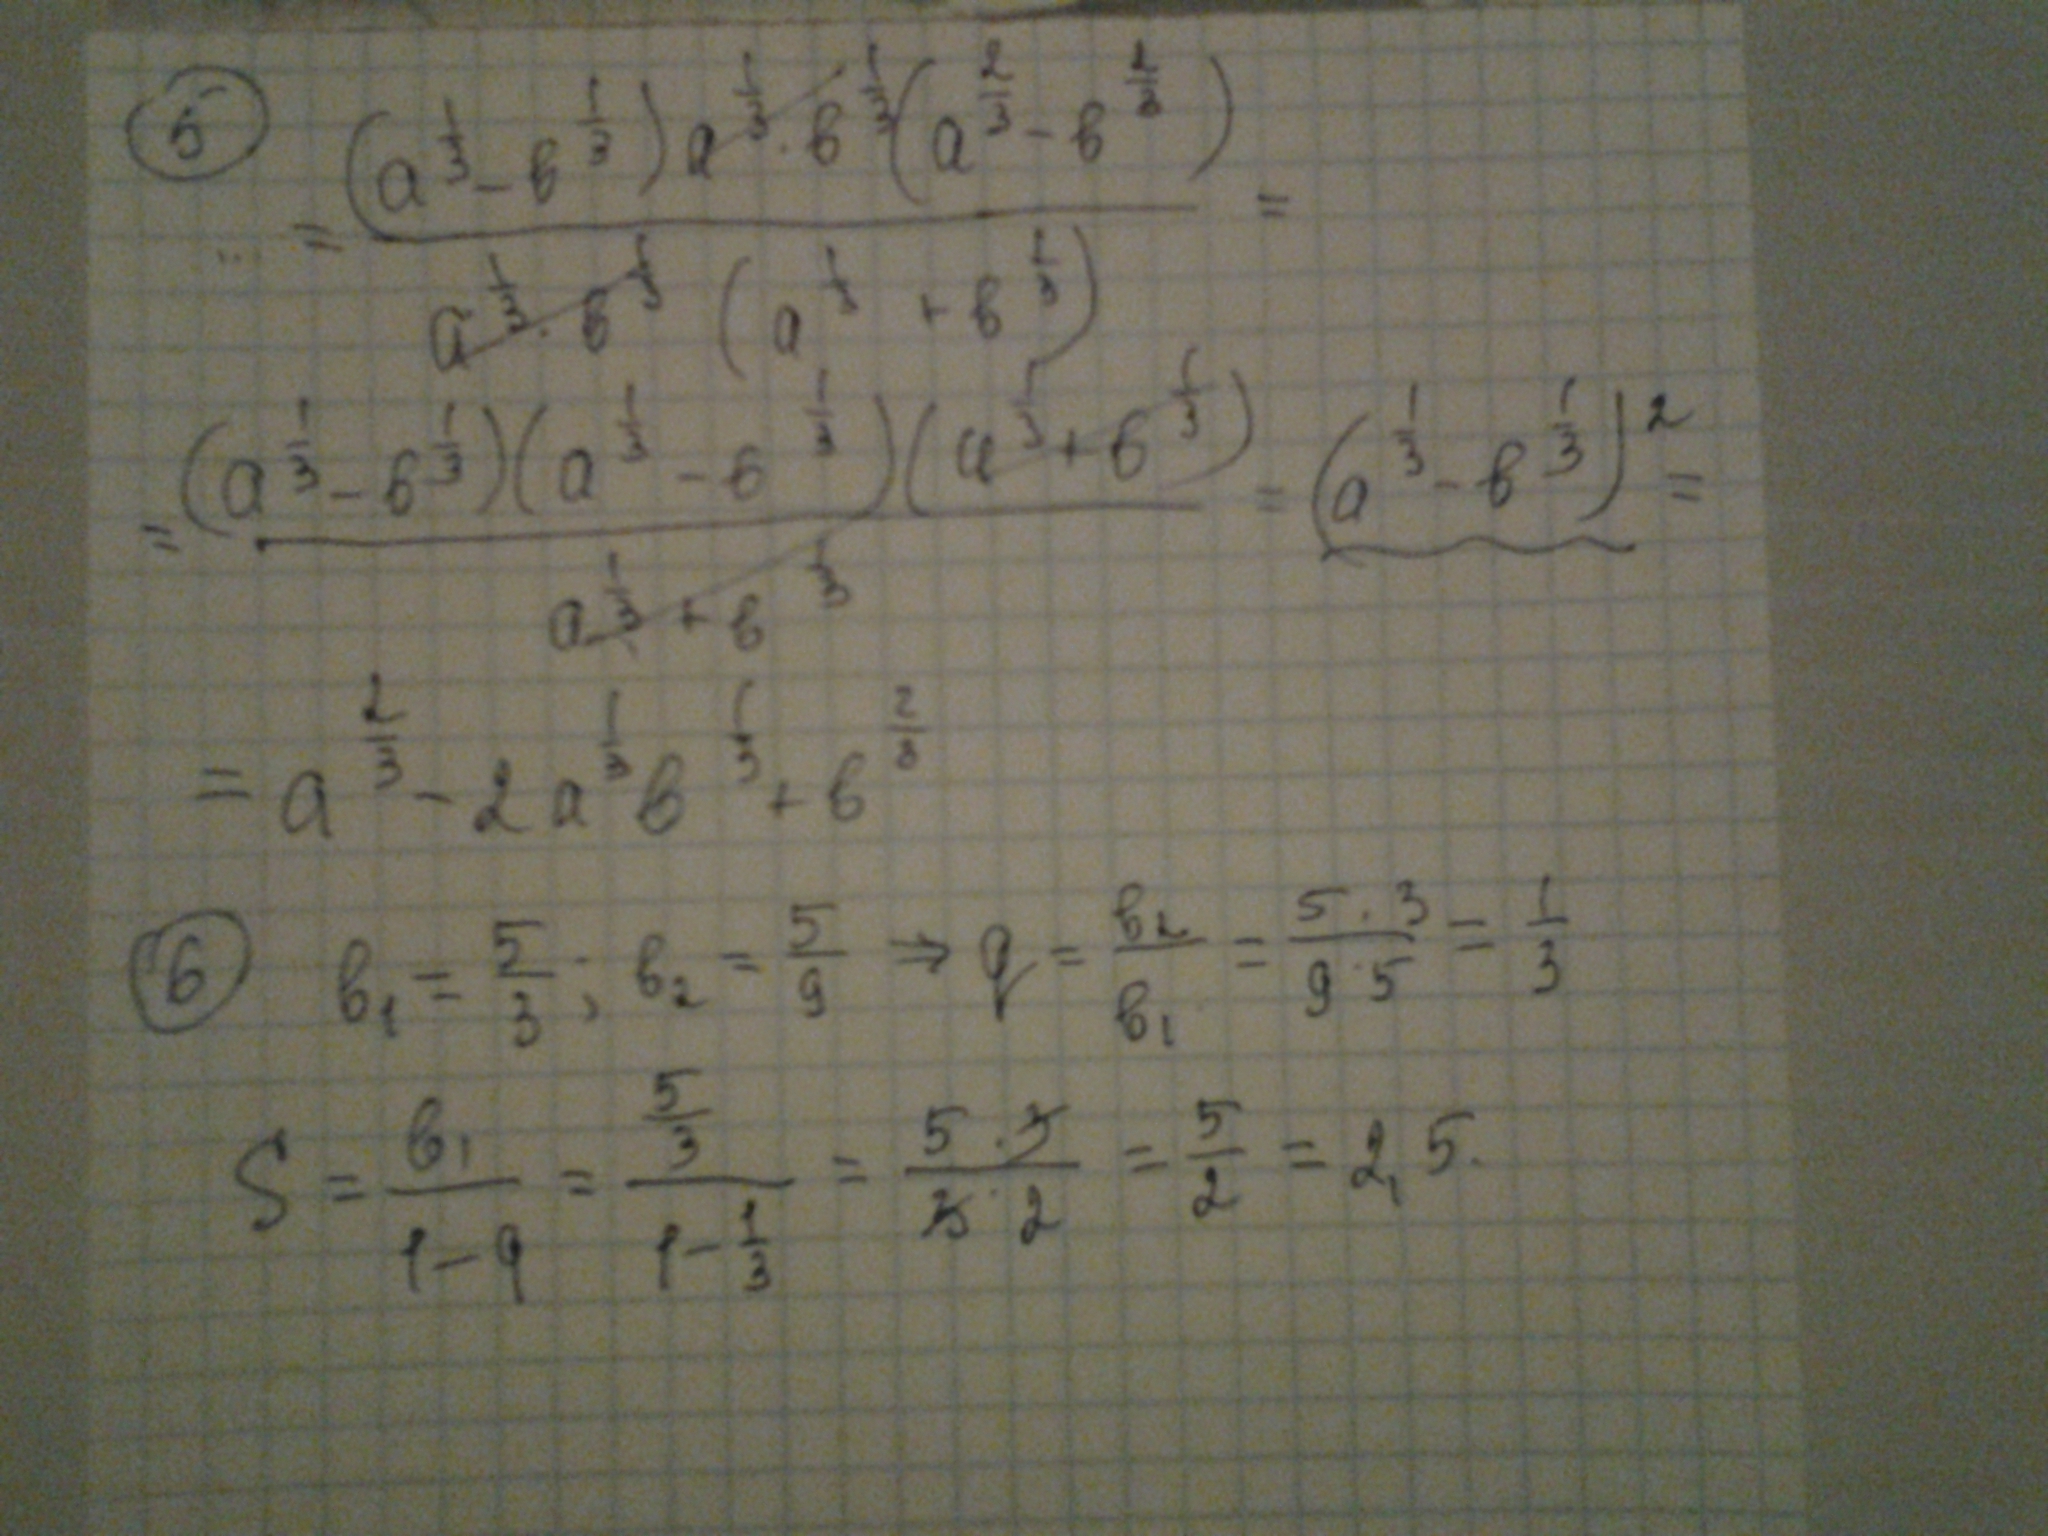 5
... = (a^(1/3) - в^(1/3)) a^(1/3) · в^(1/3) (a^(2/3) - в^(2/3)) / a^(1/3) · в^(1/3) (a^(1/3) + в^(1/3)) =
= (a^(1/3) - в^(1/3))(a^(1/3) - в^(1/3))(a^(1/3) + в^(1/3)) / a^(1/3) + в^(1/3) = (a^(1/3) - в^(1/3))^2 =
= a^(2/3) - 2 a^(1/3) в^(1/3) + в^(2/3)
6 в₁ = 5/3; в₂ = 5/9 ⇒ q = в₂/в₁ = 5·3/9·5 = 1/3
S = в₁/1-q = 5/3/1-1/3 = 5·3/3·2 = 5/2 = 2,5.